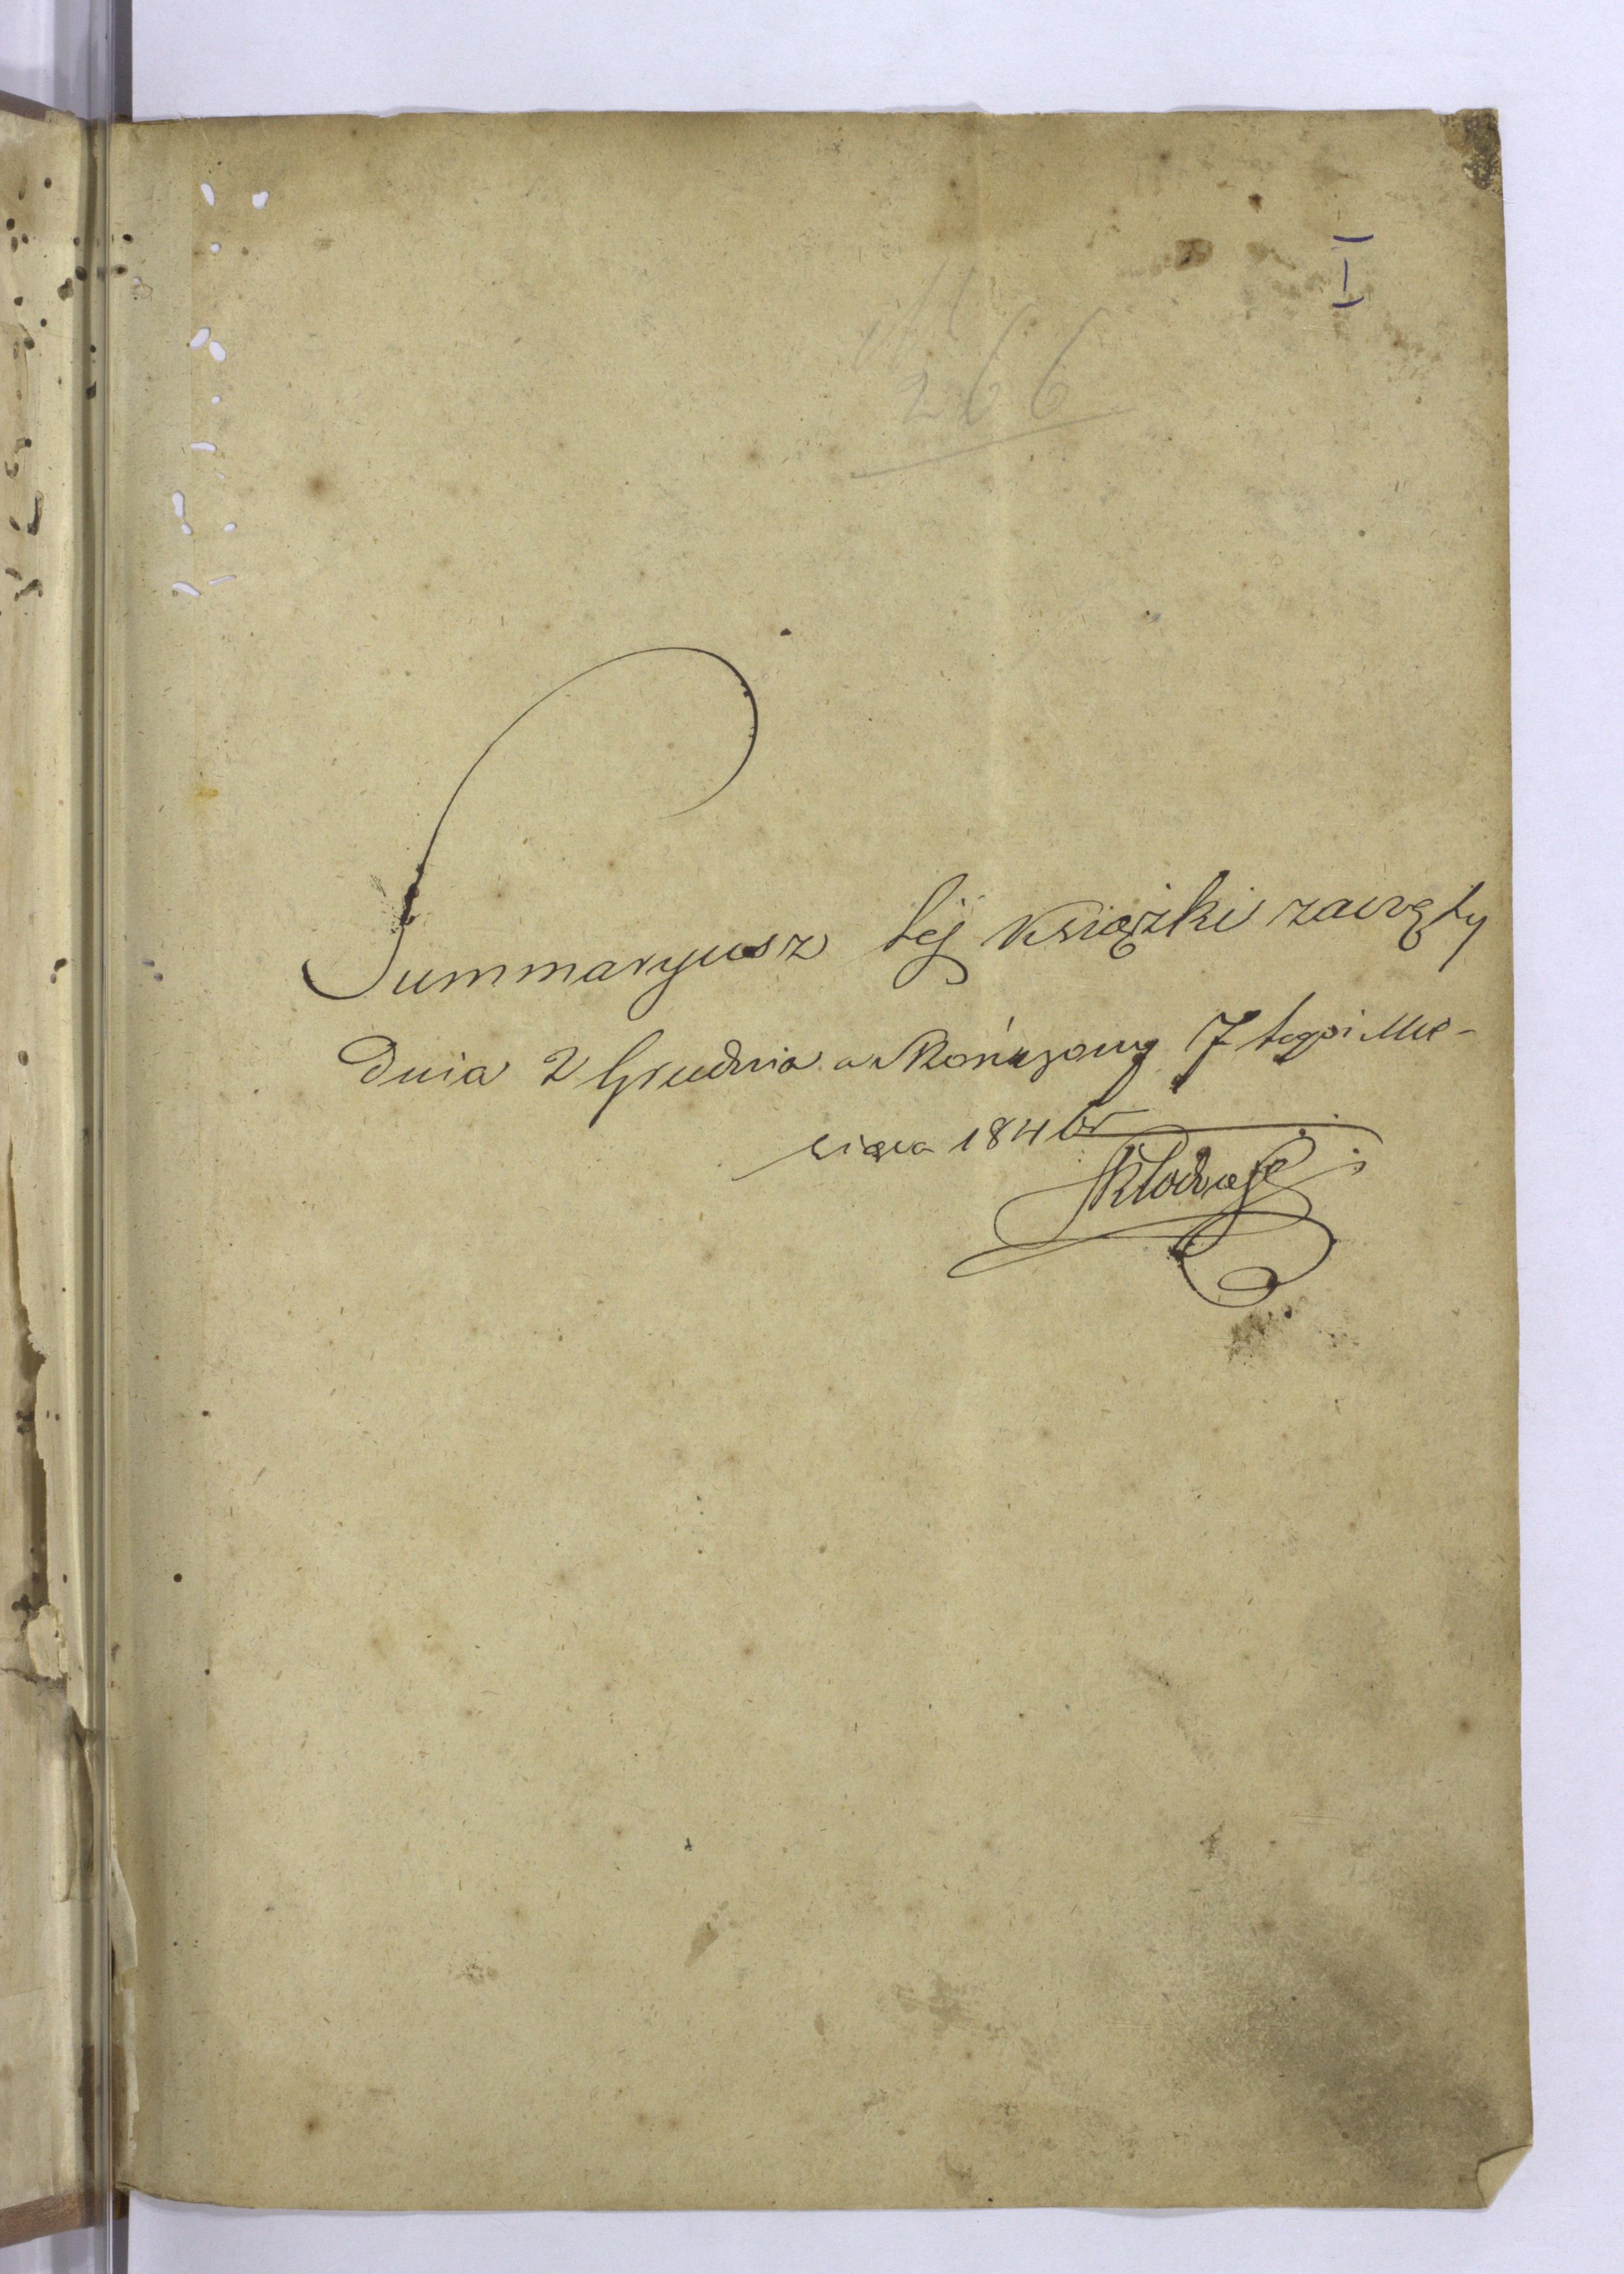 I
266
Summaryusz téj Książki zaczęty
Dnia 2 Grudnia a skończony 7 tegoż Mie-
siąca 184